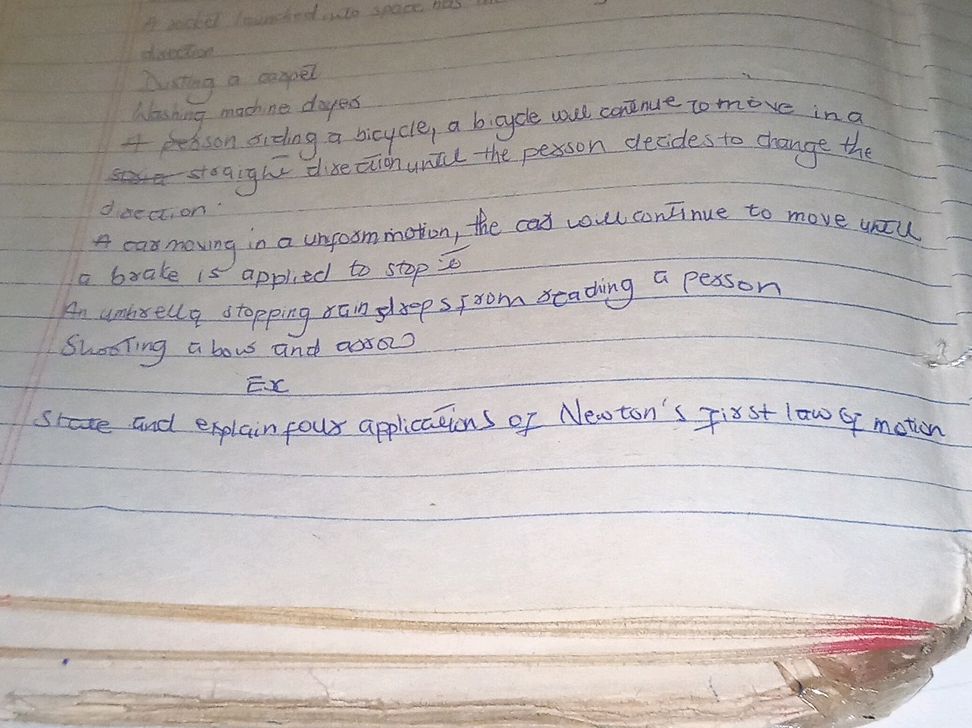 A rocket launched into space has
direction
Dusting a carpet
Washing machine dryer
A person riding a bicycle, a bicycle will continue to move in a
straight direction until the person decides to change the
direction.
A car moving in a uniform motion, the car will continue to move until
a brake is applied to stop it
An umbrella stopping rain drops from reaching a person
Shooting a bow and arrow
Ex
State and explain four applications of Newton's first law of motion